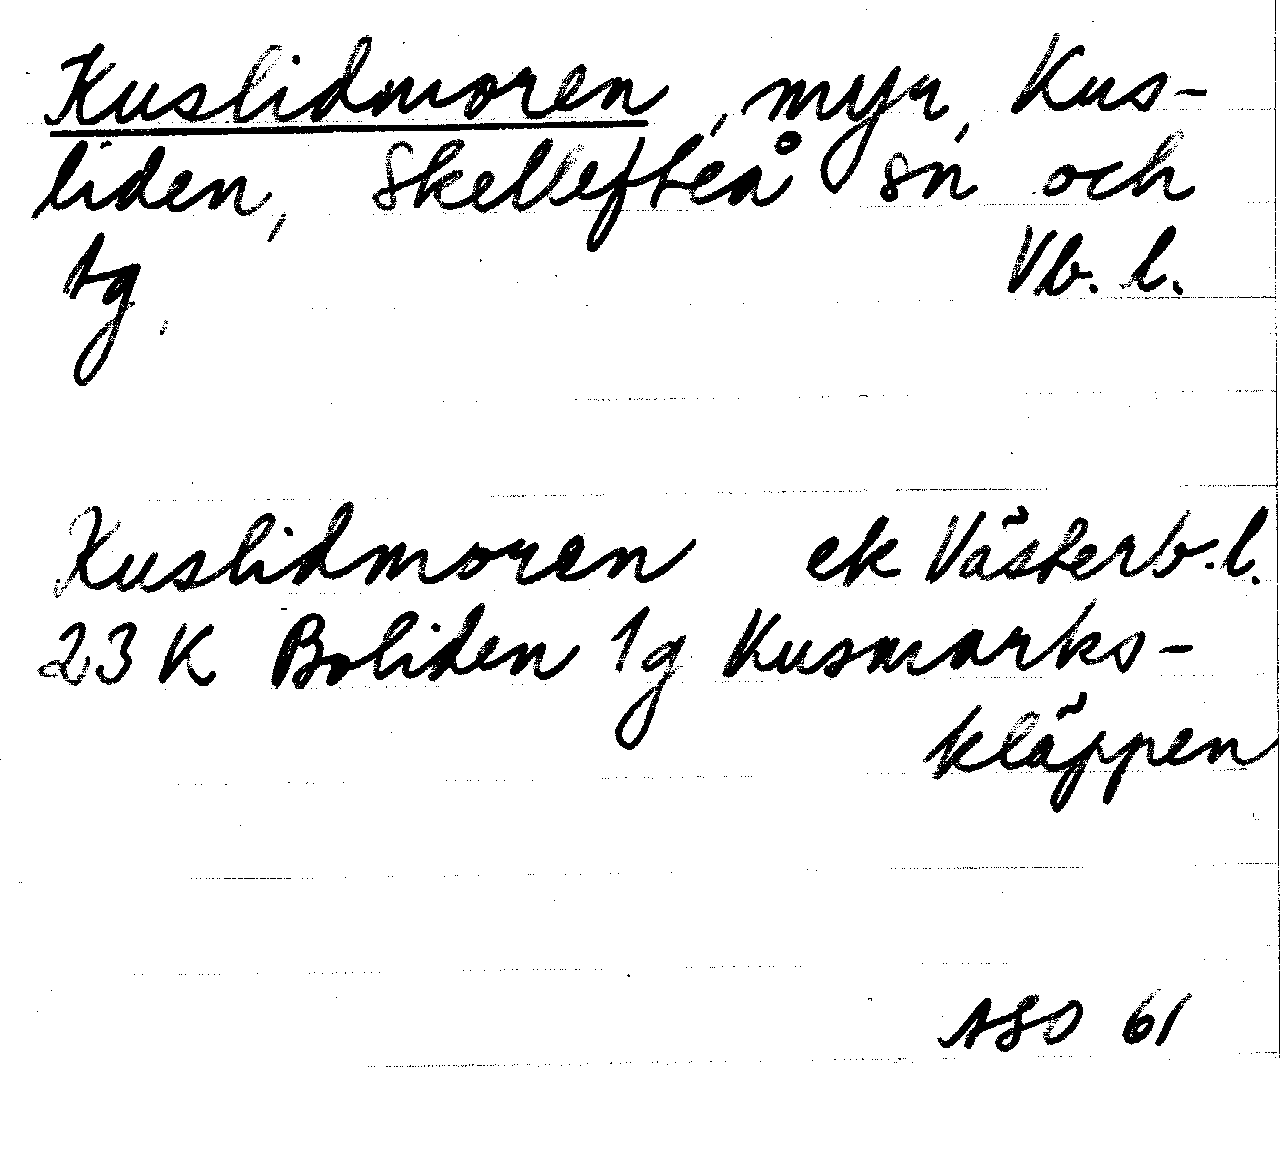 Kuslidmoren, myr, Kus-
liden, Skellefteå sn och
tg. Vb. l.
Kuslidmoren ek Västerb.l.
23 K Boliden 1g Kusmarks-
kläppen
ASO 61